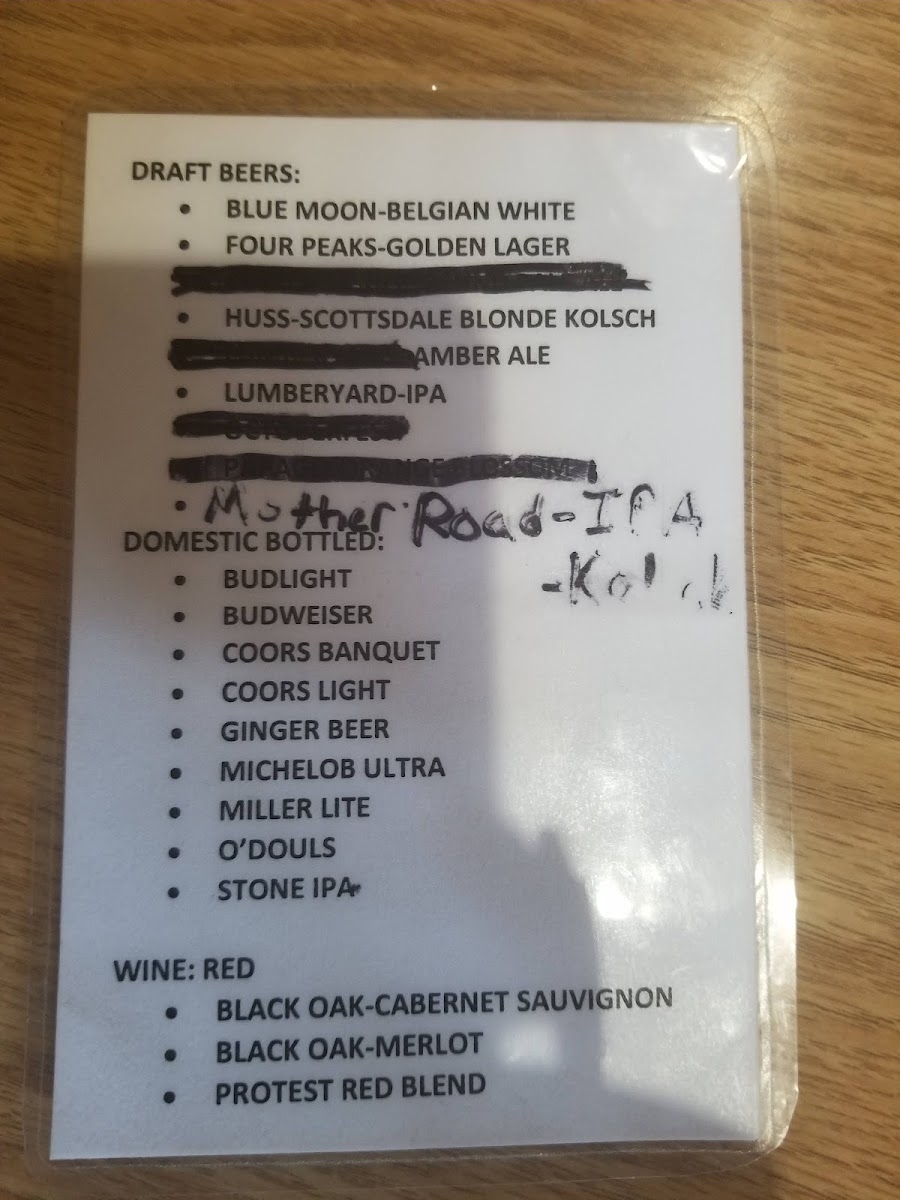 DRAFT BEERS:
• BLUE MOON-BELGIAN WHITE
• FOUR PEAKS-GOLDEN LAGER
• HUSS-SCOTTSDALE BLONDE KOLSCH
AMBER ALE
• LUMBERYARD-IPA
• Mother Road-IPA
DOMESTIC BOTTLED:
• BUDLIGHT
• BUDWEISER
• COORS BANQUET
• COORS LIGHT
• GINGER BEER
• MICHELOB ULTRA
• MILLER LITE
• O'DOULS
• STONE IPA
WINE: RED
• BLACK OAK-CABERNET SAUVIGNON
• BLACK OAK-MERLOT
• PROTEST RED BLEND